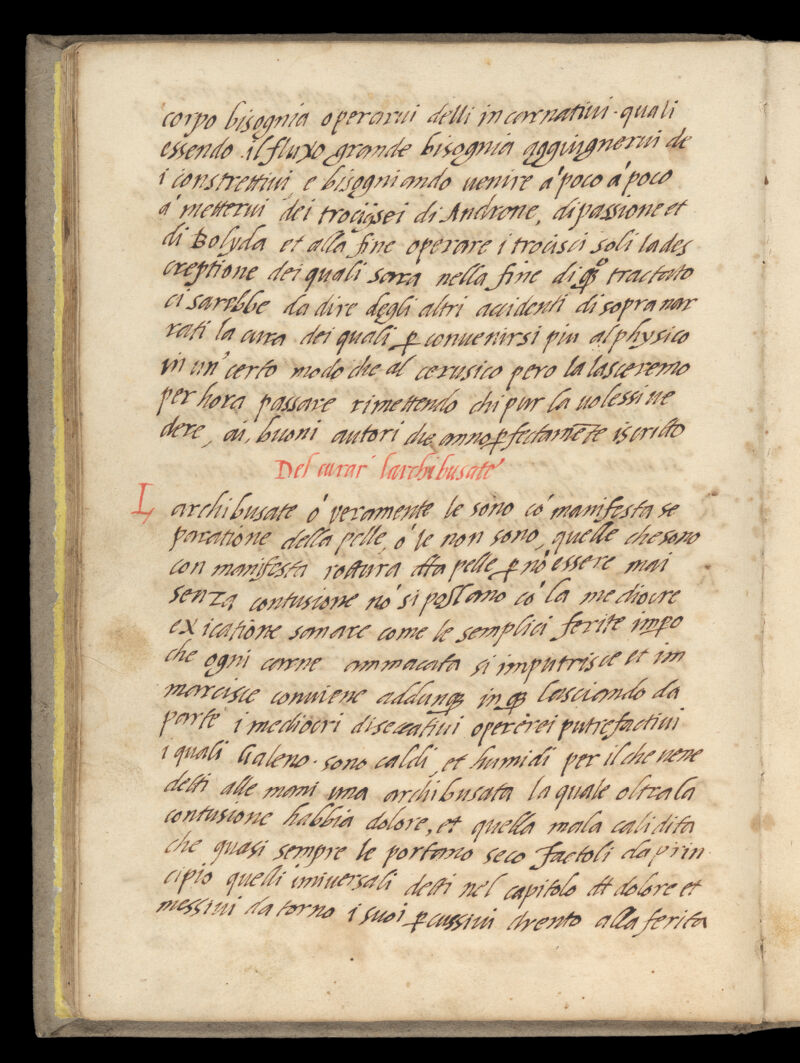 corpo bisognia operarui delli incarnatiui · quali
essendo il fluxo grande bisognia aggiugnerui de
i constrettiui, e bisogniando uenire à poco à poco
à metterui dei trocisci di Androne, di passione et
di Bolyda et alla fine operare i trocisci soli la des
creptione dei quali sara nella fine di qsto tractato
ci sarebbe da dire degli altri accidenti di sopra nar
rati la cura dei quali p conuenirsi piu al physico
in un' certo modo che al cerusico pero la lasceremo
per hora passare rimettendo chi pur la uolessi ue
dere, ai, buoni autori che anno pfectamẽte iscricto
Del curar' larchibusate
L archibusate ò veramente le sono cõ manifesta se
paratione della pelle, ò le non sono, quelle che sono
con manifesta rottura dlla pelle p nõ essere mai
senza contusione nõ si possano cõ la mediocre
exicatione sanare come le semplici ferite impo
che ogni carne ammacata si imputrisce et im
marcisce conuiene addunq in qsto lasciando da
parte i mediocri diseccatiui operere i putrefactiui
i quali Galeno · sono caldi, et humidi per il che uene
detti alle mani una archibusata la quale oltra la
contusione habbia dolore, et quella mala calidita
che quasi sempre le portano seco factoli da prin
cipio quelli uniuersali detti nel capitolo dl dolore et
messiui da torno i suoi pcussiui drento alla ferita